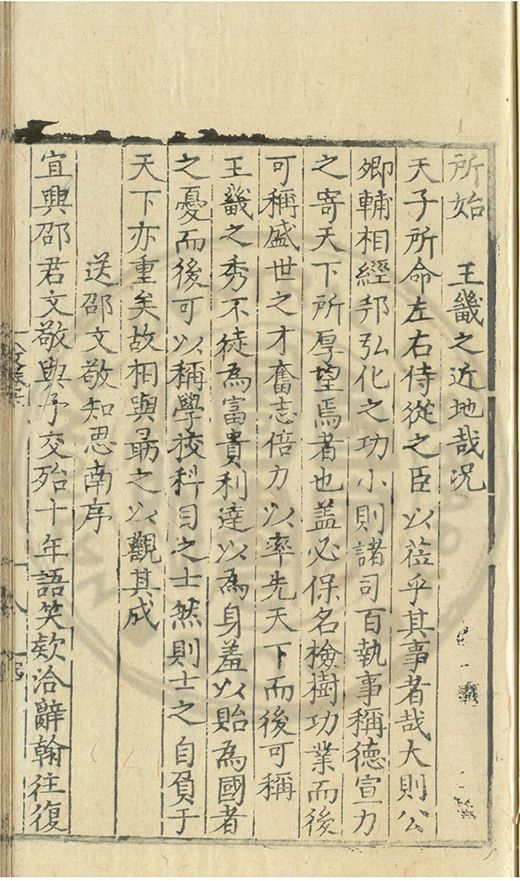 所始　王畿之近地哉况
天子所命左右侍從之臣以莅乎其事者哉大則公
卿輔相經邦弘化之功小則諸司百執事稱德宣力
之寄天下所厚望焉者也盖必保名檢樹功業而後
可稱盛世之才奮志倍力以率先天下而後可稱
王畿之秀不徒為富貴利達以為身羞以貽為國者
之憂而後可以稱學校科目之士然則士之自負于
天下亦重矣故相與勗之以觀其成
送邵文敬知思南序
宜興邵君文敬與予交殆十年語笑欵洽辭翰往復